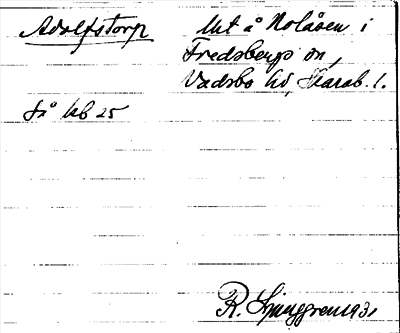 Adolfstorp
Ut å Nolåsen i
Fredsbergs sn,
Vadsbo hd, Skarab. l.
Så kb 25
R. Ljunggren 1931